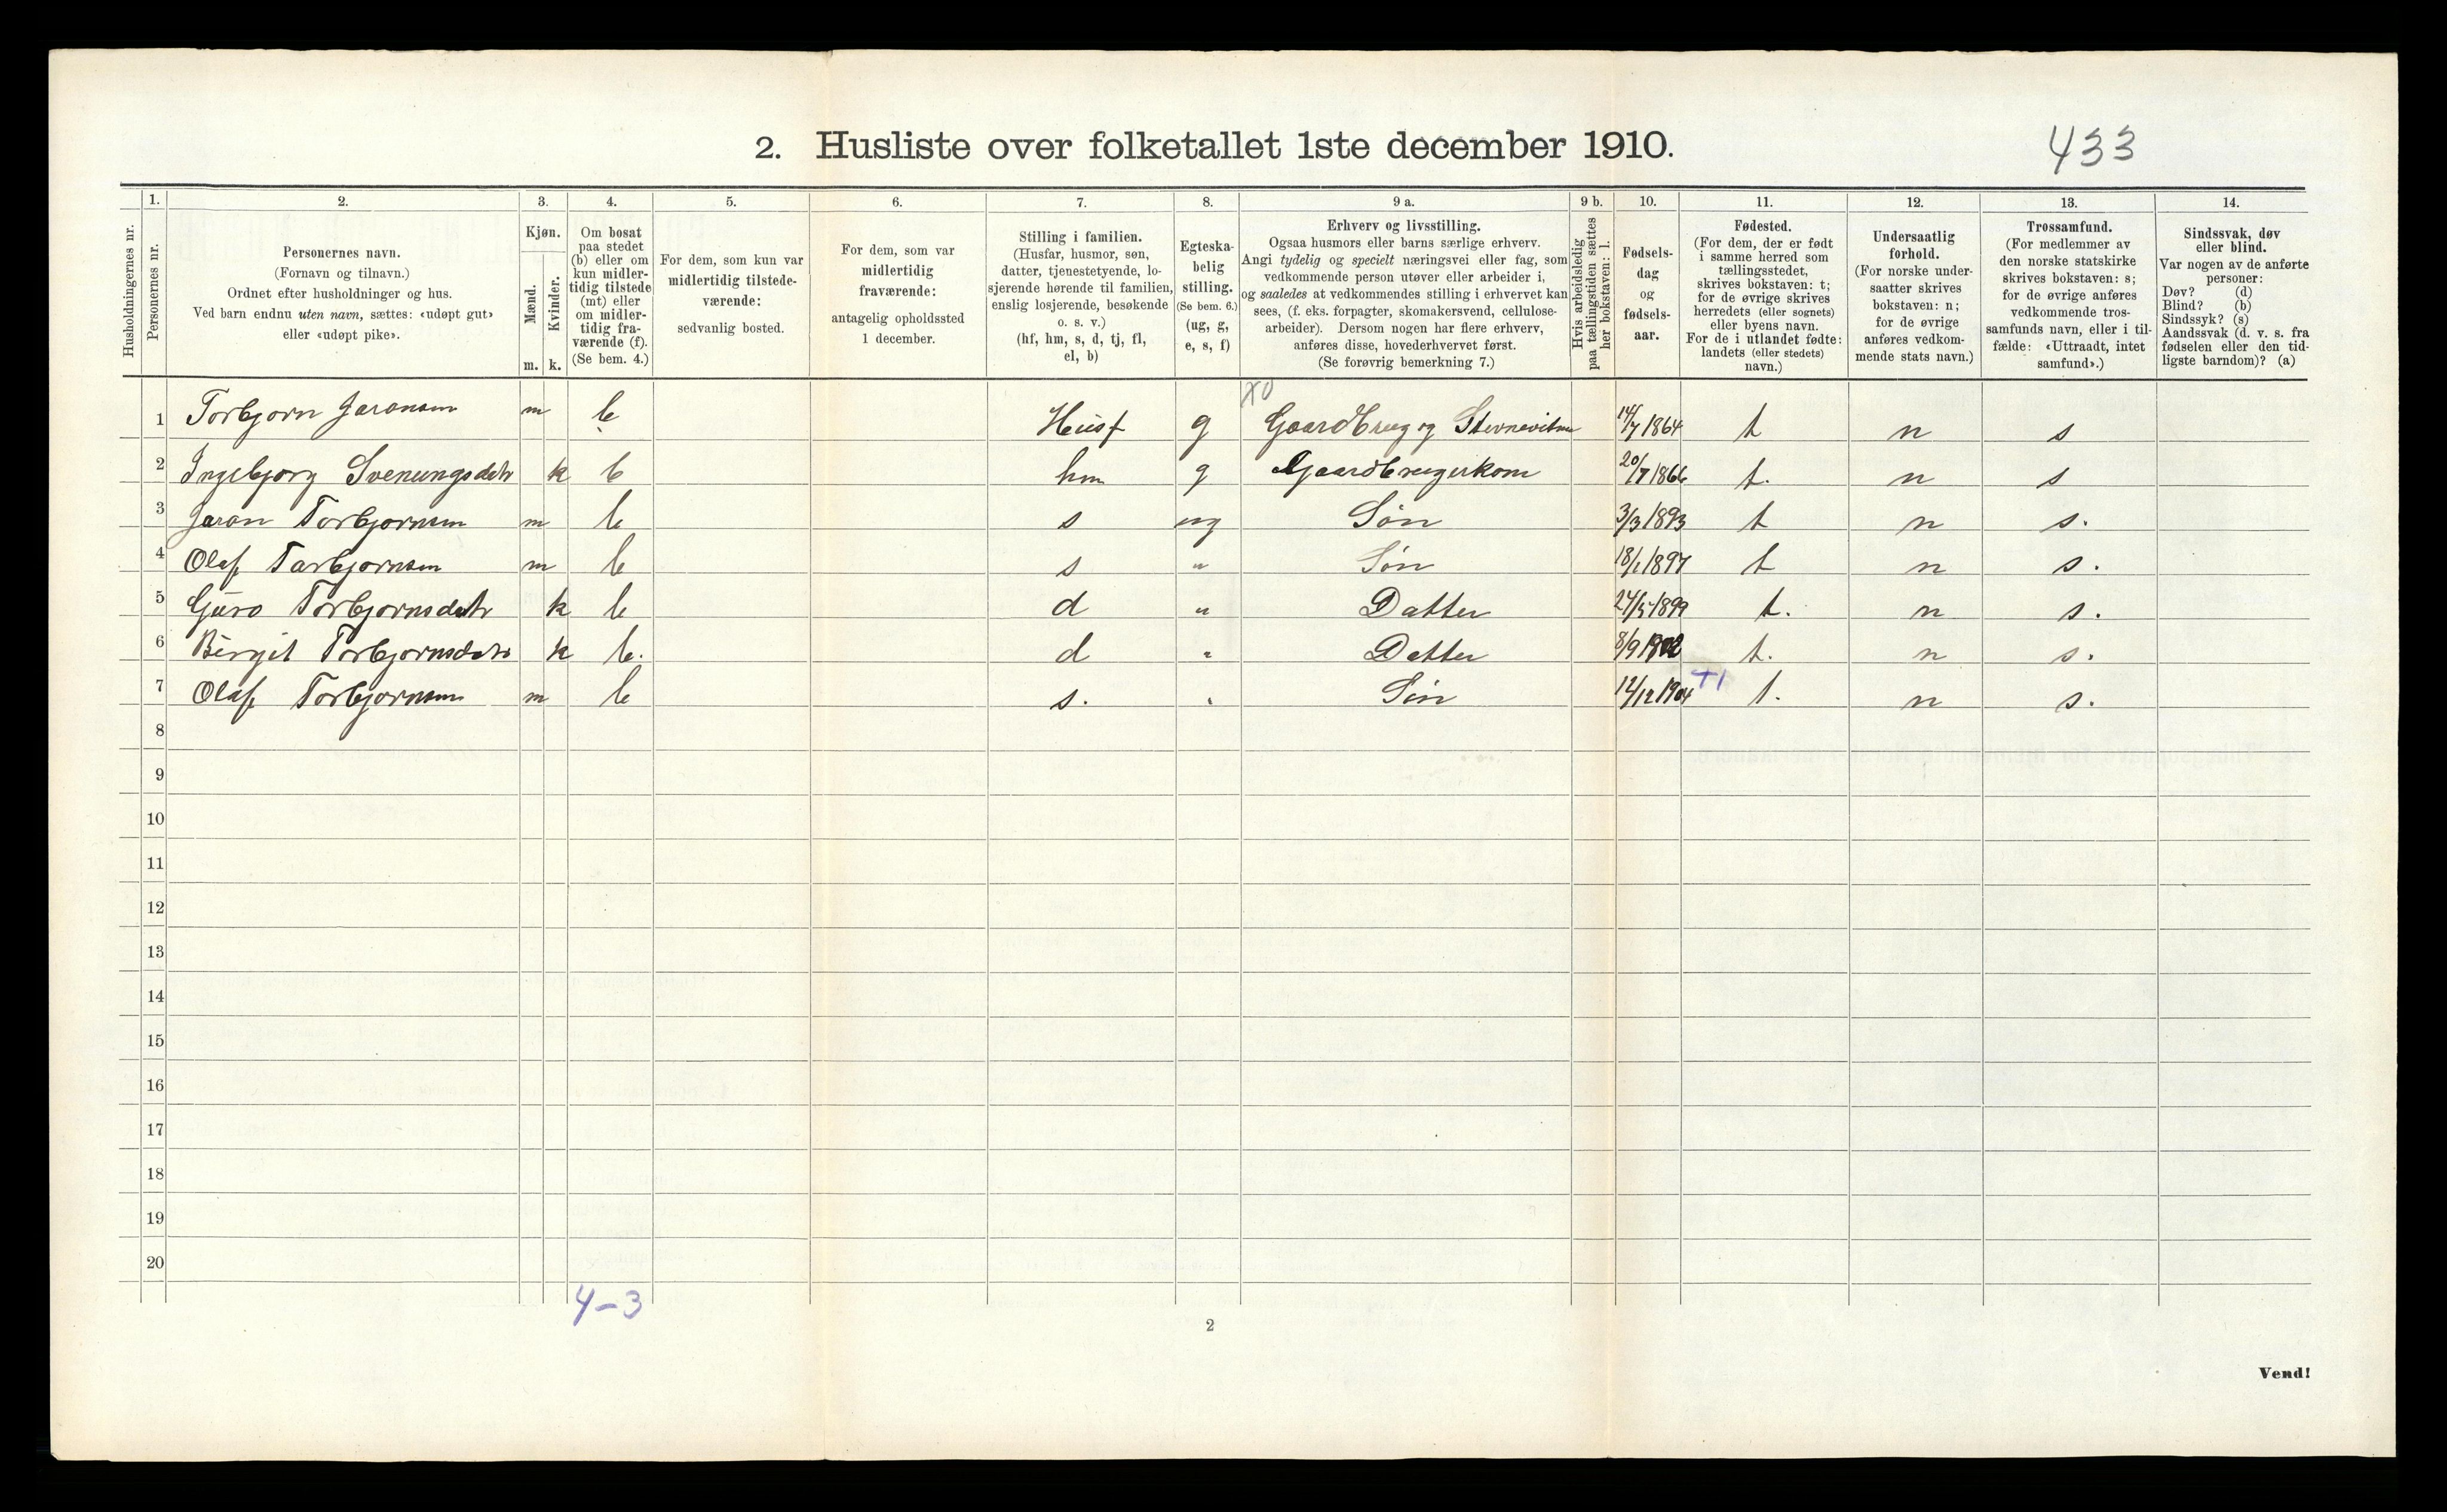 2. Husliste over folketallet 1ste december 1910.
433
1. 2. 3. 4. 5. 6. 7. 8. 9 a. 9 b. 10. 11. 12. 13. 14.
Husholdningernes nr.
Personernes nr.
Personernes navn.
(Fornavn og tilnavn.)
Ordnet efter husholdninger og hus.
Ved barn endnu uten navn, sættes: «udøpt gut»
eller «udøpt pike».
Kjøn.
Mænd.
Kvinder.
m. k.
Om bosat
paa stedet
(b) eller om
kun midler-
tidig tilstede
(mt) eller
om midler-
tidig fra-
værende (f).
(Se bem. 4.)
For dem, som kun var
midlertidig tilstede-
værende:
sedvanlig bosted.
For dem, som var
midlertidig
fraværende:
antagelig opholdssted
1 december.
Stilling i familien.
(Husfar, husmor, søn,
datter, tjenestetyende, lo-
sjerende hørende til familien,
enslig losjerende, besøkende
o. s. v.)
(hf, hm, s, d, tj, fl,
el, b)
Egteska-
belig
stilling.
(Se bem. 6.)
(ug, g,
e, s, f)
Erhverv og livsstilling.
Ogsaa husmors eller barns særlige erhverv.
Angi tydelig og specielt næringsvei eller fag, som
vedkommende person utøver eller arbeider i,
og saaledes at vedkommendes stilling i erhvervet kan
sees, (f. eks. forpagter, skomakersvend, cellulose-
arbeider). Dersom nogen har flere erhverv,
anføres disse, hovederhvervet først.
(Se forøvrig bemerkning 7.)
Hvis arbeidsledig
paa tællingstiden sættes
her bokstaven: l.
Fødsels-
dag
og
fødsels-
aar.
Fødested.
(For dem, der er født
i samme herred som
tællingsstedet,
skrives bokstaven: t;
for de øvrige skrives
herredets (eller sognets)
eller byens navn.
For de i utlandet fødte:
landets (eller stedets)
navn.)
Undersaatlig
forhold.
(For norske under-
saatter skrives
bokstaven: n;
for de øvrige
anføres vedkom-
mende stats navn.)
Trossamfund.
(For medlemmer av
den norske statskirke
skrives bokstaven: s;
for de øvrige anføres
vedkommende tros-
samfunds navn, eller i til-
fælde: «Uttraadt, intet
samfund».)
Sindssvak, døv
eller blind.
Var nogen av de anførte
personer:
Døv? (d)
Blind? (b)
Sindssyk? (s)
Aandssvak (d. v. s. fra
fødselen eller den tid-
ligste barndom)? (a)
X0
1 Torbjørn Jaransen m b Husf g Gaardbrug og Stevnevitne 14/7 1864 t n s
2 Ingebjorg Svenungsdatr k b hm g Gaardbrugerkone 20/7 1866 t. n s
3 Jaran Torbjornsen m b s ug Søn 3/3 1893 t n s.
4 Olaf Tarbjornsen m b s " Søn 18/1 1897 t n s.
5 Guro Torbjornsdatr k b d " Datter 24/5 1899 t. n s.
6 Birgit Torbjornsdatr k b. d " Datter 8/9 1902 t. n s.
7 Olaf Torbjornsen m b s. " Søn 12/12 1904 +1 t. n s.
8
9
10
11
12
13
14
15
16
17
18
19
20
4-3
2
Vend!